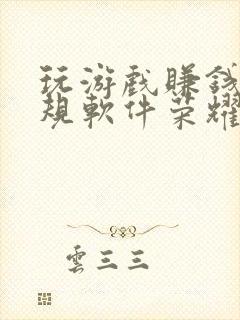 玩游戲賺錢
規軟件荣耀
雲三三